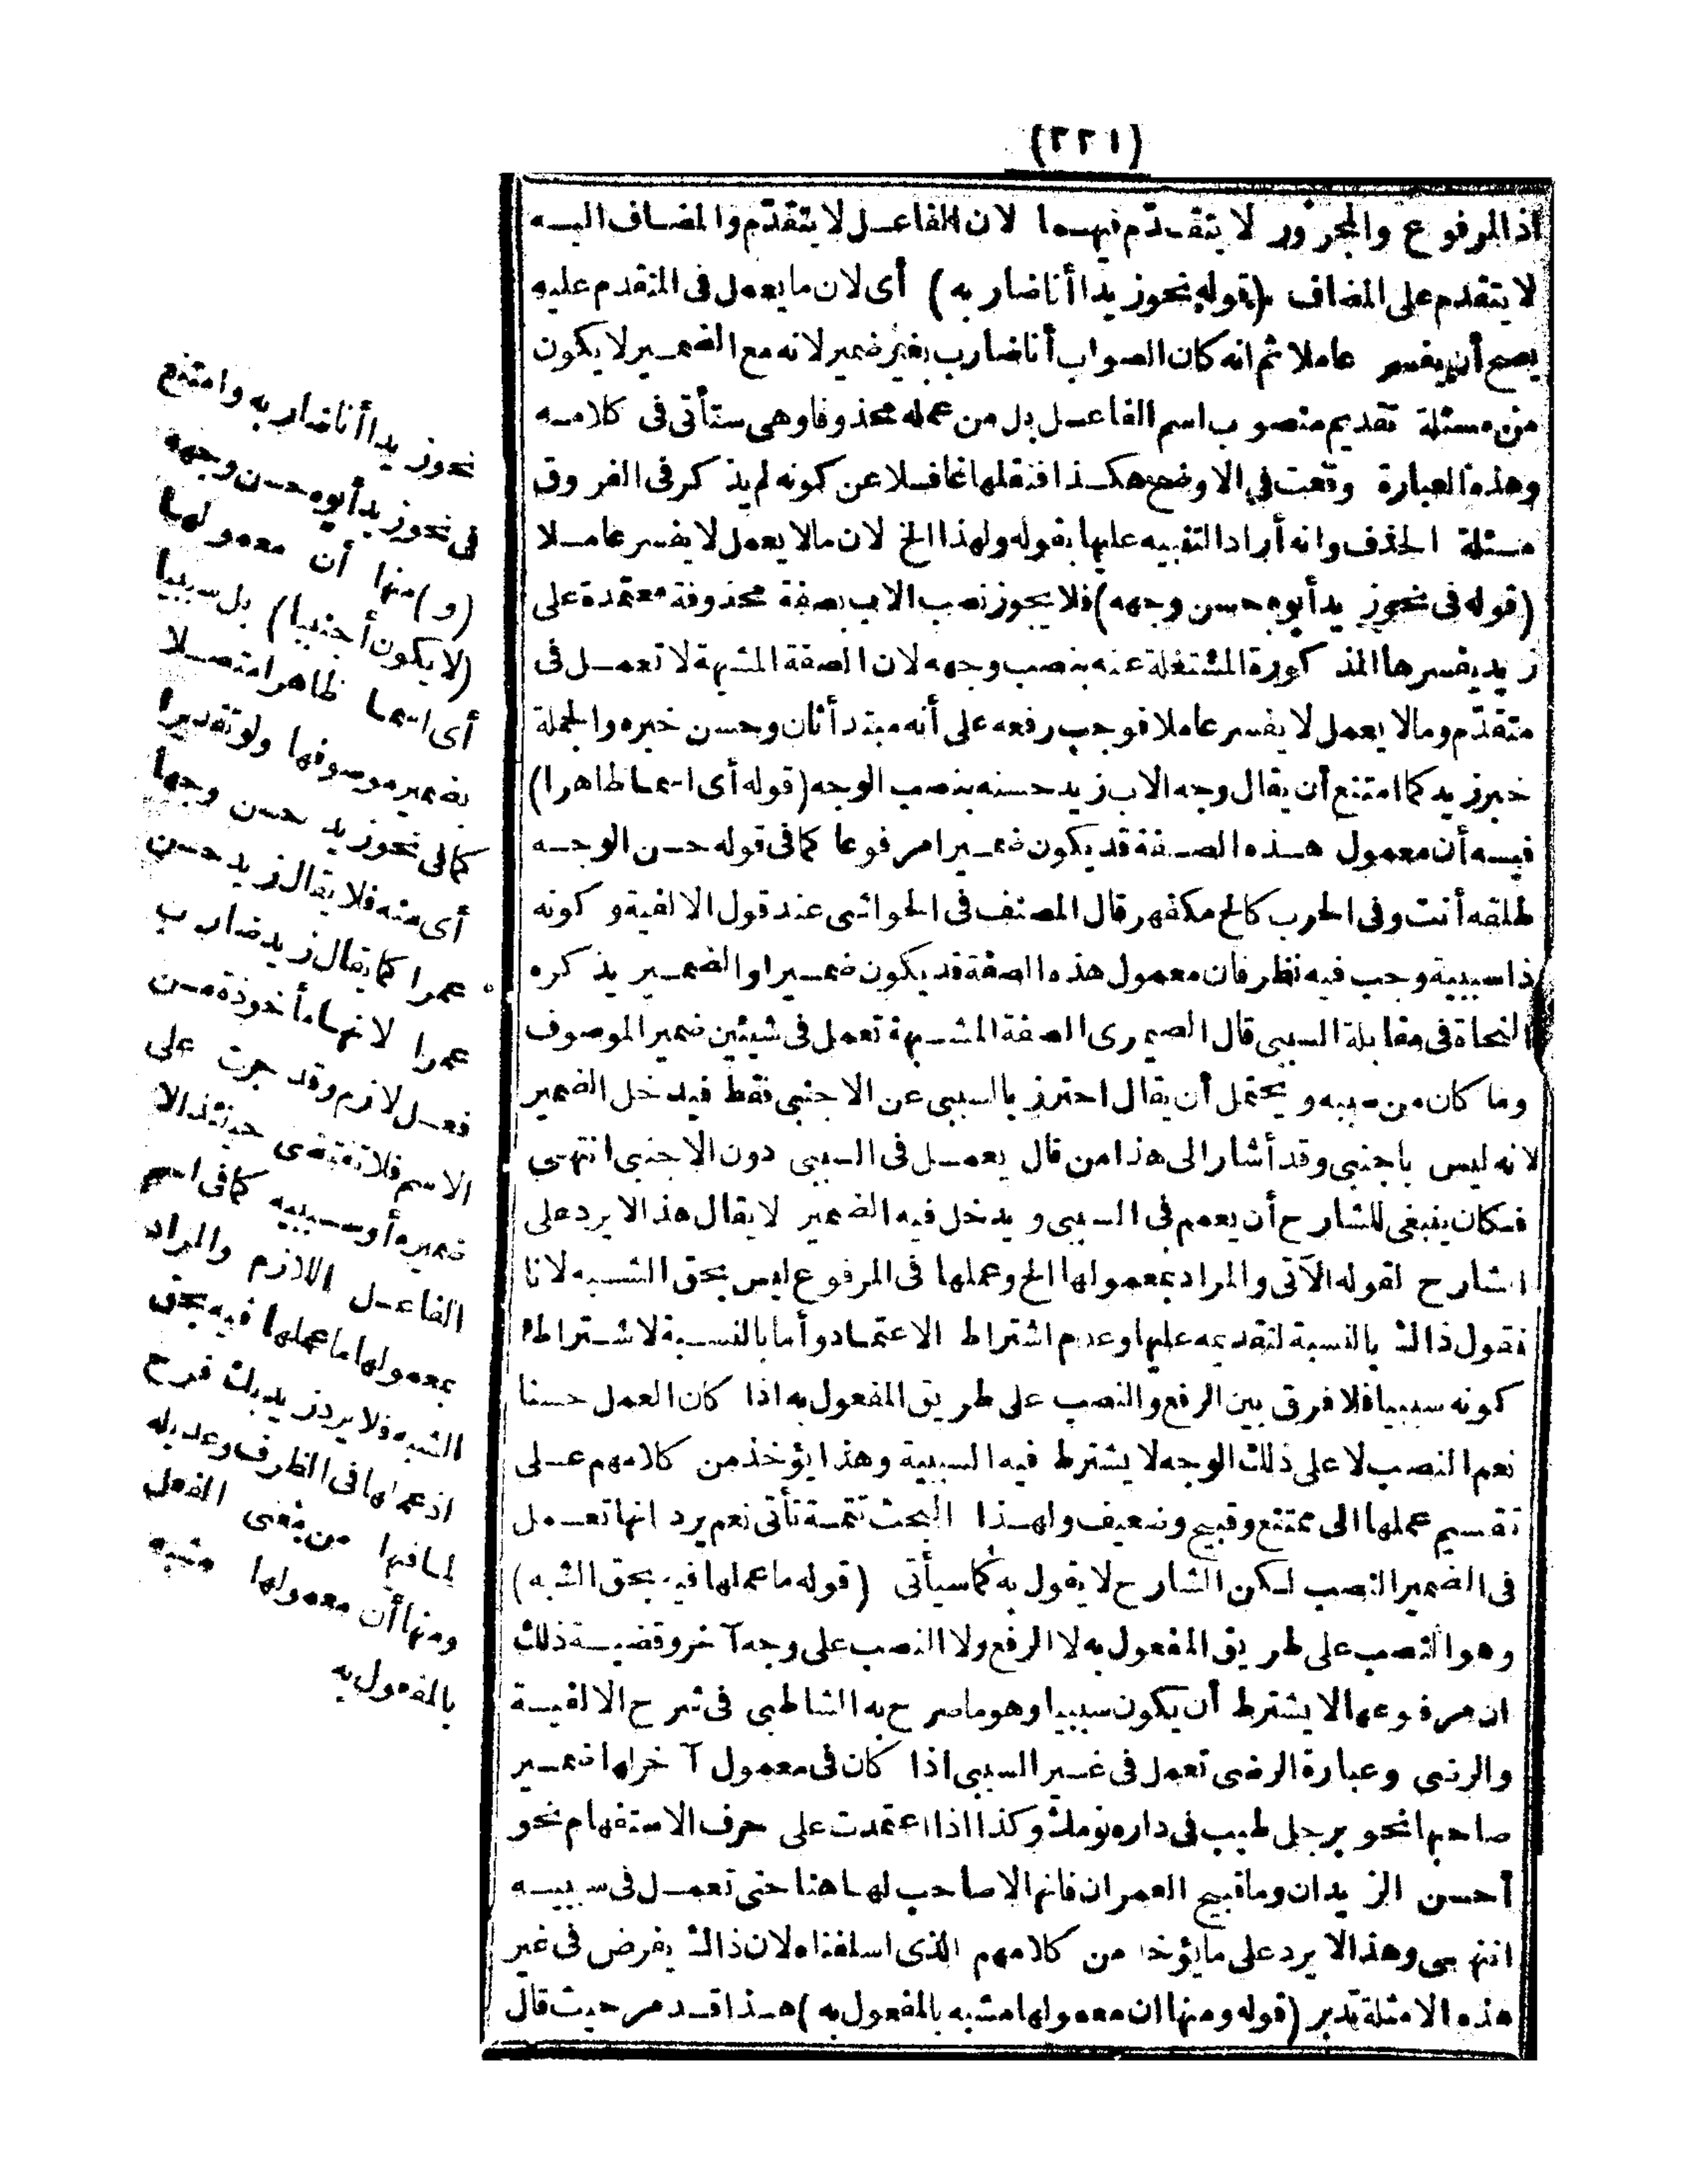 (٢٢١)
اذ المرفوع والمجرور لا يتقدّم فيهما لان الفاعل لا يتقدّم والمضاف اليه
لا يتقدم على المضاف (قوله نحو زيدا أنا ضاربه) أى لان ما يعمل فى المتقدم عليه
يصح أن يفسر عاملا ثم انه كان الصواب أنا ضارب بغير ضمير لانه مع الضمير لا يكون
من مسئلة تقديم منصوب اسم الفاعل بل من عمله محذوفا وهى ستأتى فى كلامه
وهذه العبارة وقعت فى الاوضح هكذا فنقلها غافلا عن كونه لم يذكر فى الفروق
مسئلة الحذف وانه أراد التنبيه عليها بقوله ولهذا الخ لان مالا يعمل لا يفسر عاملا
(قوله فى نحو زيد أبوه حسن وجهه) فلا يجوز نصب الاب بصفة محذوفة معتمدة على
زيد يفسرها المذكورة المشتغلة عنه بنصب وجهه لان الصفة المشبهة لا تعمل فى
متقدّم ومالا يعمل لا يفسر عاملا فوجب رفعه على أنه مبتدأ ثان وحسن خبره والجملة
خبر زيد كما امتنع أن يقال وجه الاب زيد حسنه بنصب الوجه (قوله أى اسما ظاهرا)
فيه أن معمول هذه الصفة قد يكون ضميرا مرفوعا كما فى قوله حسن الوجه
طلقه أنت وفى الحرب كالح مكفهر قال المصنف فى الحواشى عند قول الالفية وكونه
ذا سببية وجب فيه نظر فان معمول هذه الصفة قد يكون ضميرا والضمير يذكره
النحاة فى مقابلة السببى قال الصيمرى الصفة المشبهة تعمل فى شيئين ضمير الموصوف
وما كان من سببه ويحتمل أن يقال احترز بالسببى عن الاجنبى فقط فيدخل الضمير
لانه ليس باجنبى وقد أشار الى هذا من قال يعمل فى السببى دون الاجنبى انتهى
فكان ينبغى للشارح أن يعمم فى السببى ويدخل فيه الضمير لا يقال هذا لا يرد على
الشارح لقوله الآتى والمراد بمعمولها الخ وعملها فى المرفوع ليس بحق الشبه لانا
نقول ذاك بالنسبة لتقديمه عليها وعدم اشتراط الاعتماد وأما بالنسبة لاشتراط
كونه سببيا فلا فرق بين الرفع والنصب على طريق المفعول به اذا كان العمل حسنا
نعم النصب لا على ذلك الوجه لا يشترط فيه السببية وهذا يؤخذ من كلامهم على
تقسيم عملها الى ممتنع وقبيح وضعيف ولهذا البحث تتمة تأتى نعم يرد انها تعمل
فى الضمير النصب لكن الشارح لا يقول به كما سيأتى (قوله ما عملها فيه بحق الشبه)
وهو النصب على طريق المفعول به لا الرفع ولا النصب على وجه آخر وقضية ذلك
ان مرفوعها لا يشترط أن يكون سببيا وهو ما صرح به الشاطبى فى شرح الالفية
والرضى وعبارة الرضى تعمل فى غير السببى اذا كان فى معمول آخر لها ضمير
صاحبها نحو برجل طيب فى داره نومك وكذا اذا اعتمدت على حرف الاستفهام نحو
أحسن الزيدان وما قبيح العمران فانها لا صاحب لها هنا حتى تعمل فى سببه
انتهى وهذا لا يرد على ما يؤخذ من كلامهم الذى اسلفناه لان ذاك يفرض فى غير
هذه الامثلة تدبر (قوله ومنها ان معمولها مشبه بالمفعول به) هذا قد مر حيث قال
نحو زيدا أنا ضاربه وامتنع
فى نحو زيد أبوه حسن وجهه
(و) منها أن معمولها
(لا يكون أجنبيا) بل سببيا
أى اسما ظاهرا متصلا
بضمير موصوفها ولو تقديرا
كما فى نحو زيد حسن وجها
أى منه فلا يقال زيد حسن
عمرا كما يقال زيد ضارب
عمرا لانها مأخوذة من
فعل لازم وقد جرت على
الاسم فلا تقتضى حينئذ الا
ضميره أو سببيه كما فى اسم
الفاعل اللازم والمراد
بمعمولها ما عملها فيه بحق
الشبه فلا يرد زيد بك فرح
اذ عملها فى الظرف وعديله
لما فيها من معنى الفعل
ومنها أن معمولها مشبه
بالمفعول به